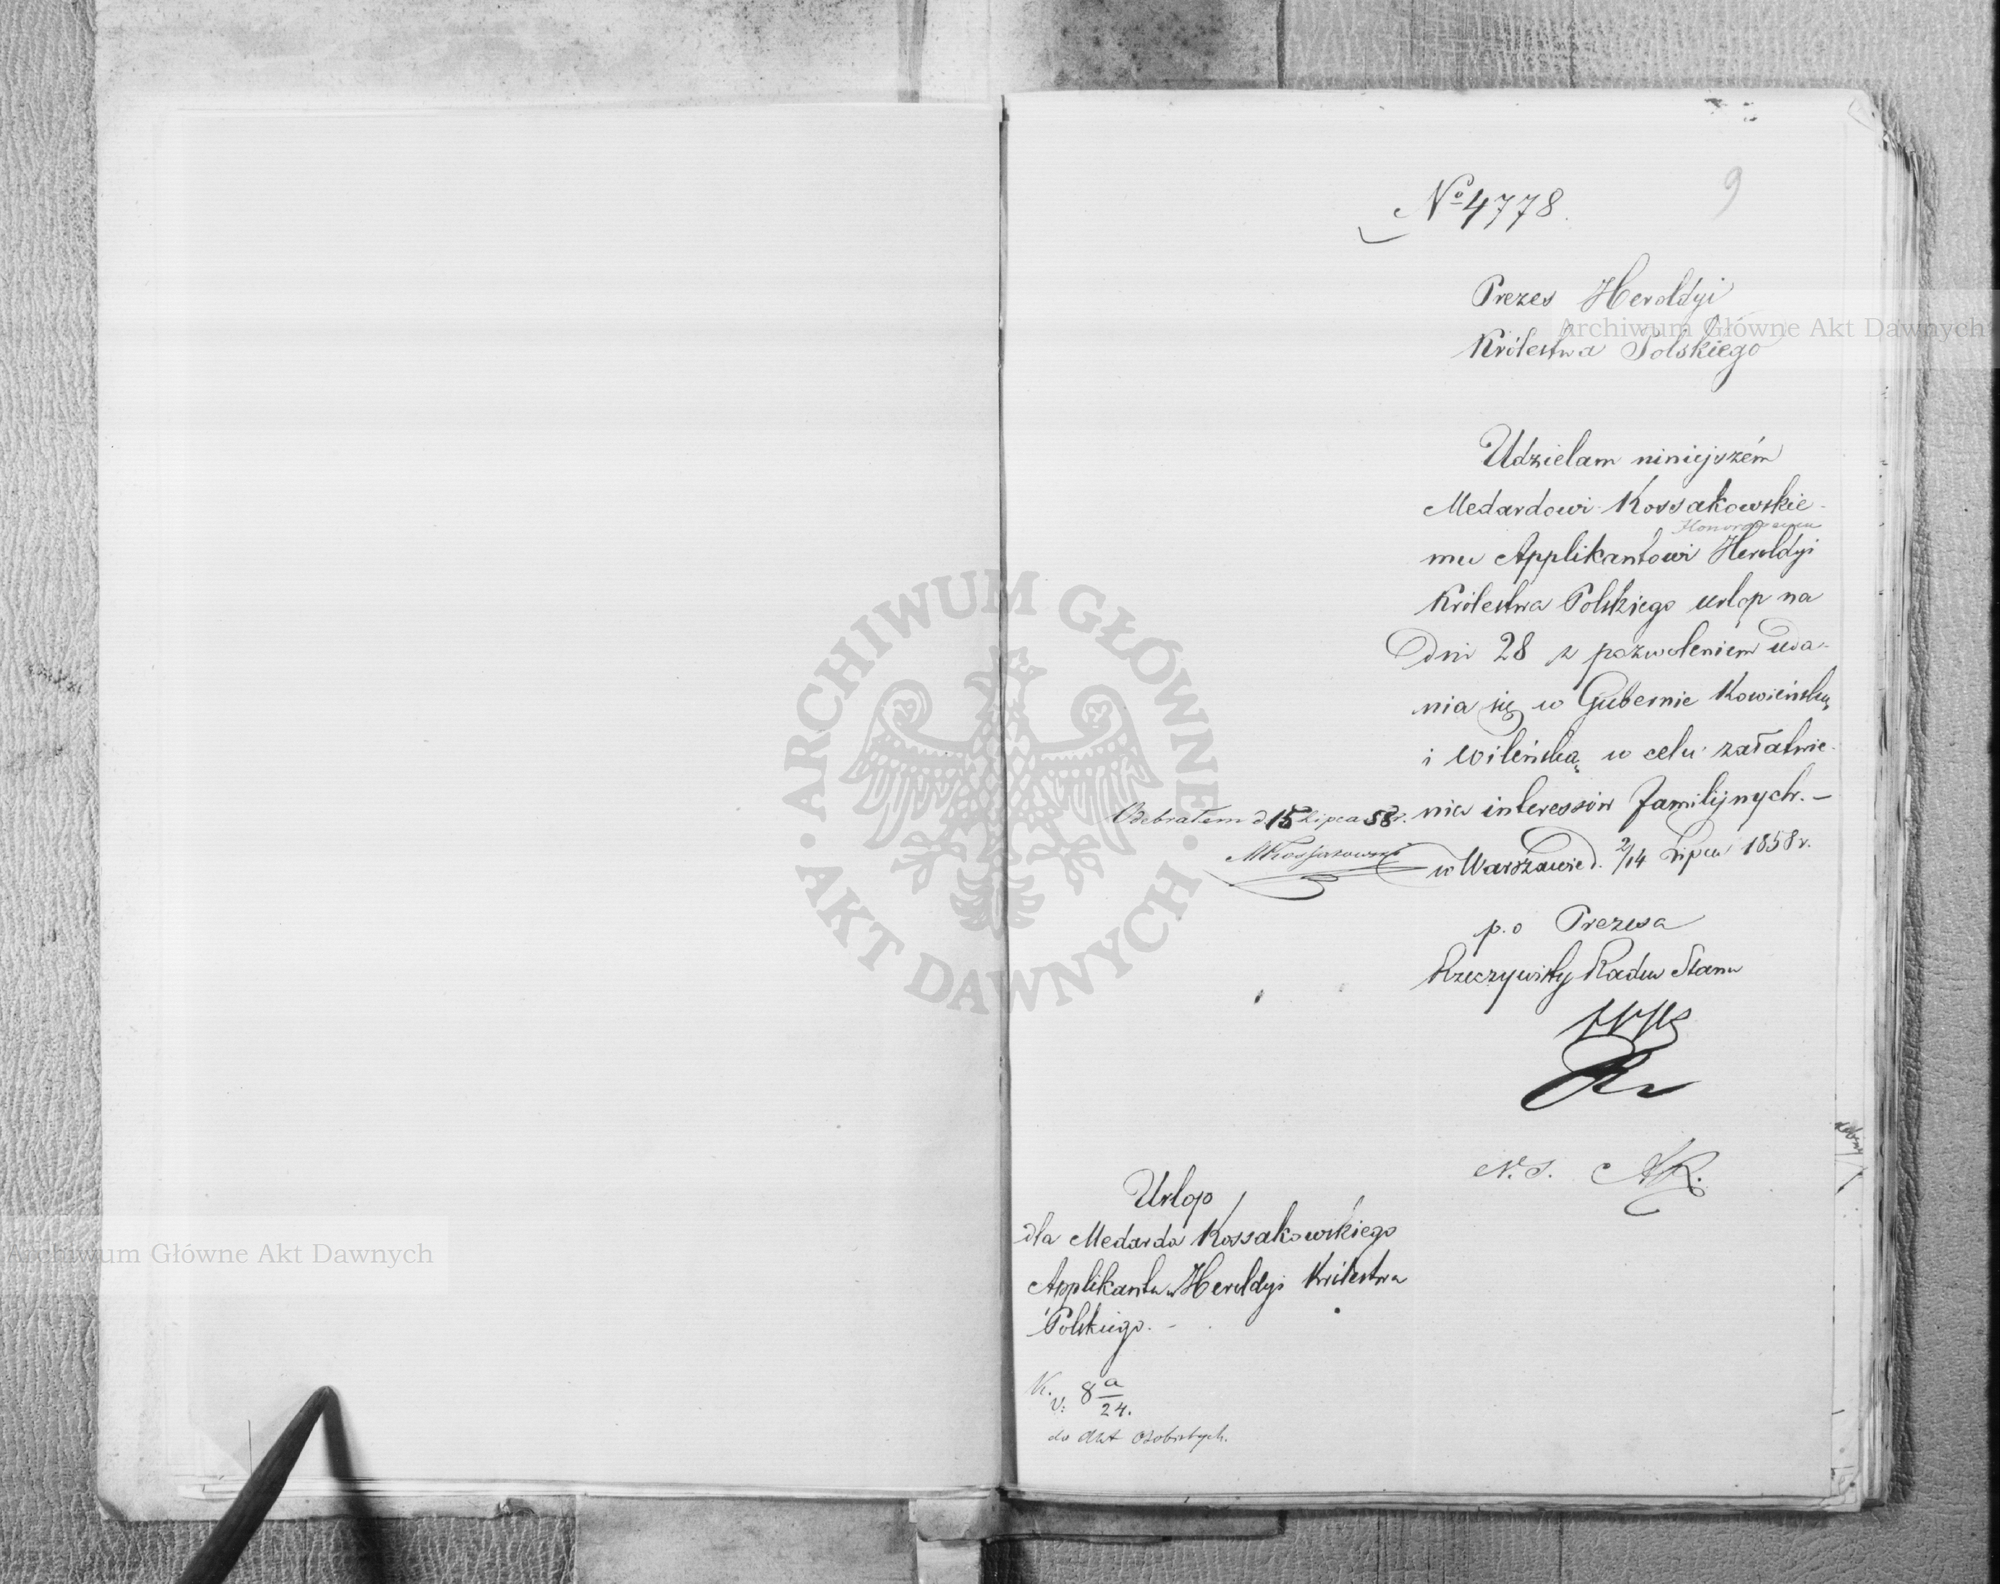 9
№ 4778.
Prezes Heroldyi
Królestwa Polskiego
Udzielam niniejszém
Medardowi Kossakowskie-
Honorowemu
mu Applikantowi Heroldyi
Królestwa Polskiego urlop na
Dni 28 z pozwoleniem uda-
nia się w Gubernie Kowieńską
i Wileńską w celu załatwie-
nia interessów familijnych. —
w Warszawie d. 2/14 Lipca 1858 r.
Odebrałem d. 15 Lipca 58 r.
MKossakowski
p. o Prezesa
Rzeczywisty Radca Stanu
N. S. AR.
Urlop
dla Medarda Kossakowskiego
Applikanta w Heroldyi Królestwa
Polskiego. —
K. V: 8 a/24.
do Akt osobistych.
Archiwum Główne Akt Dawnych
Archiwum Główne Akt Dawnych
ARCHIWUM GŁÓWNE · AKT DAWNYCH ·